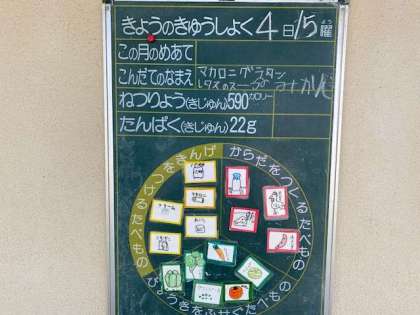 きょうのきゅうしょく 4日 15曜
この月のめあて
こんだてのなまえ マカロニグラタン
レタスのスープ みかん
ねつりょう(きじゅん)590カロリー
たんぱく(きじゅん)22g
からだをつくるたべもの
びょうきをふせぐたべもの
げんきをつけるたべもの